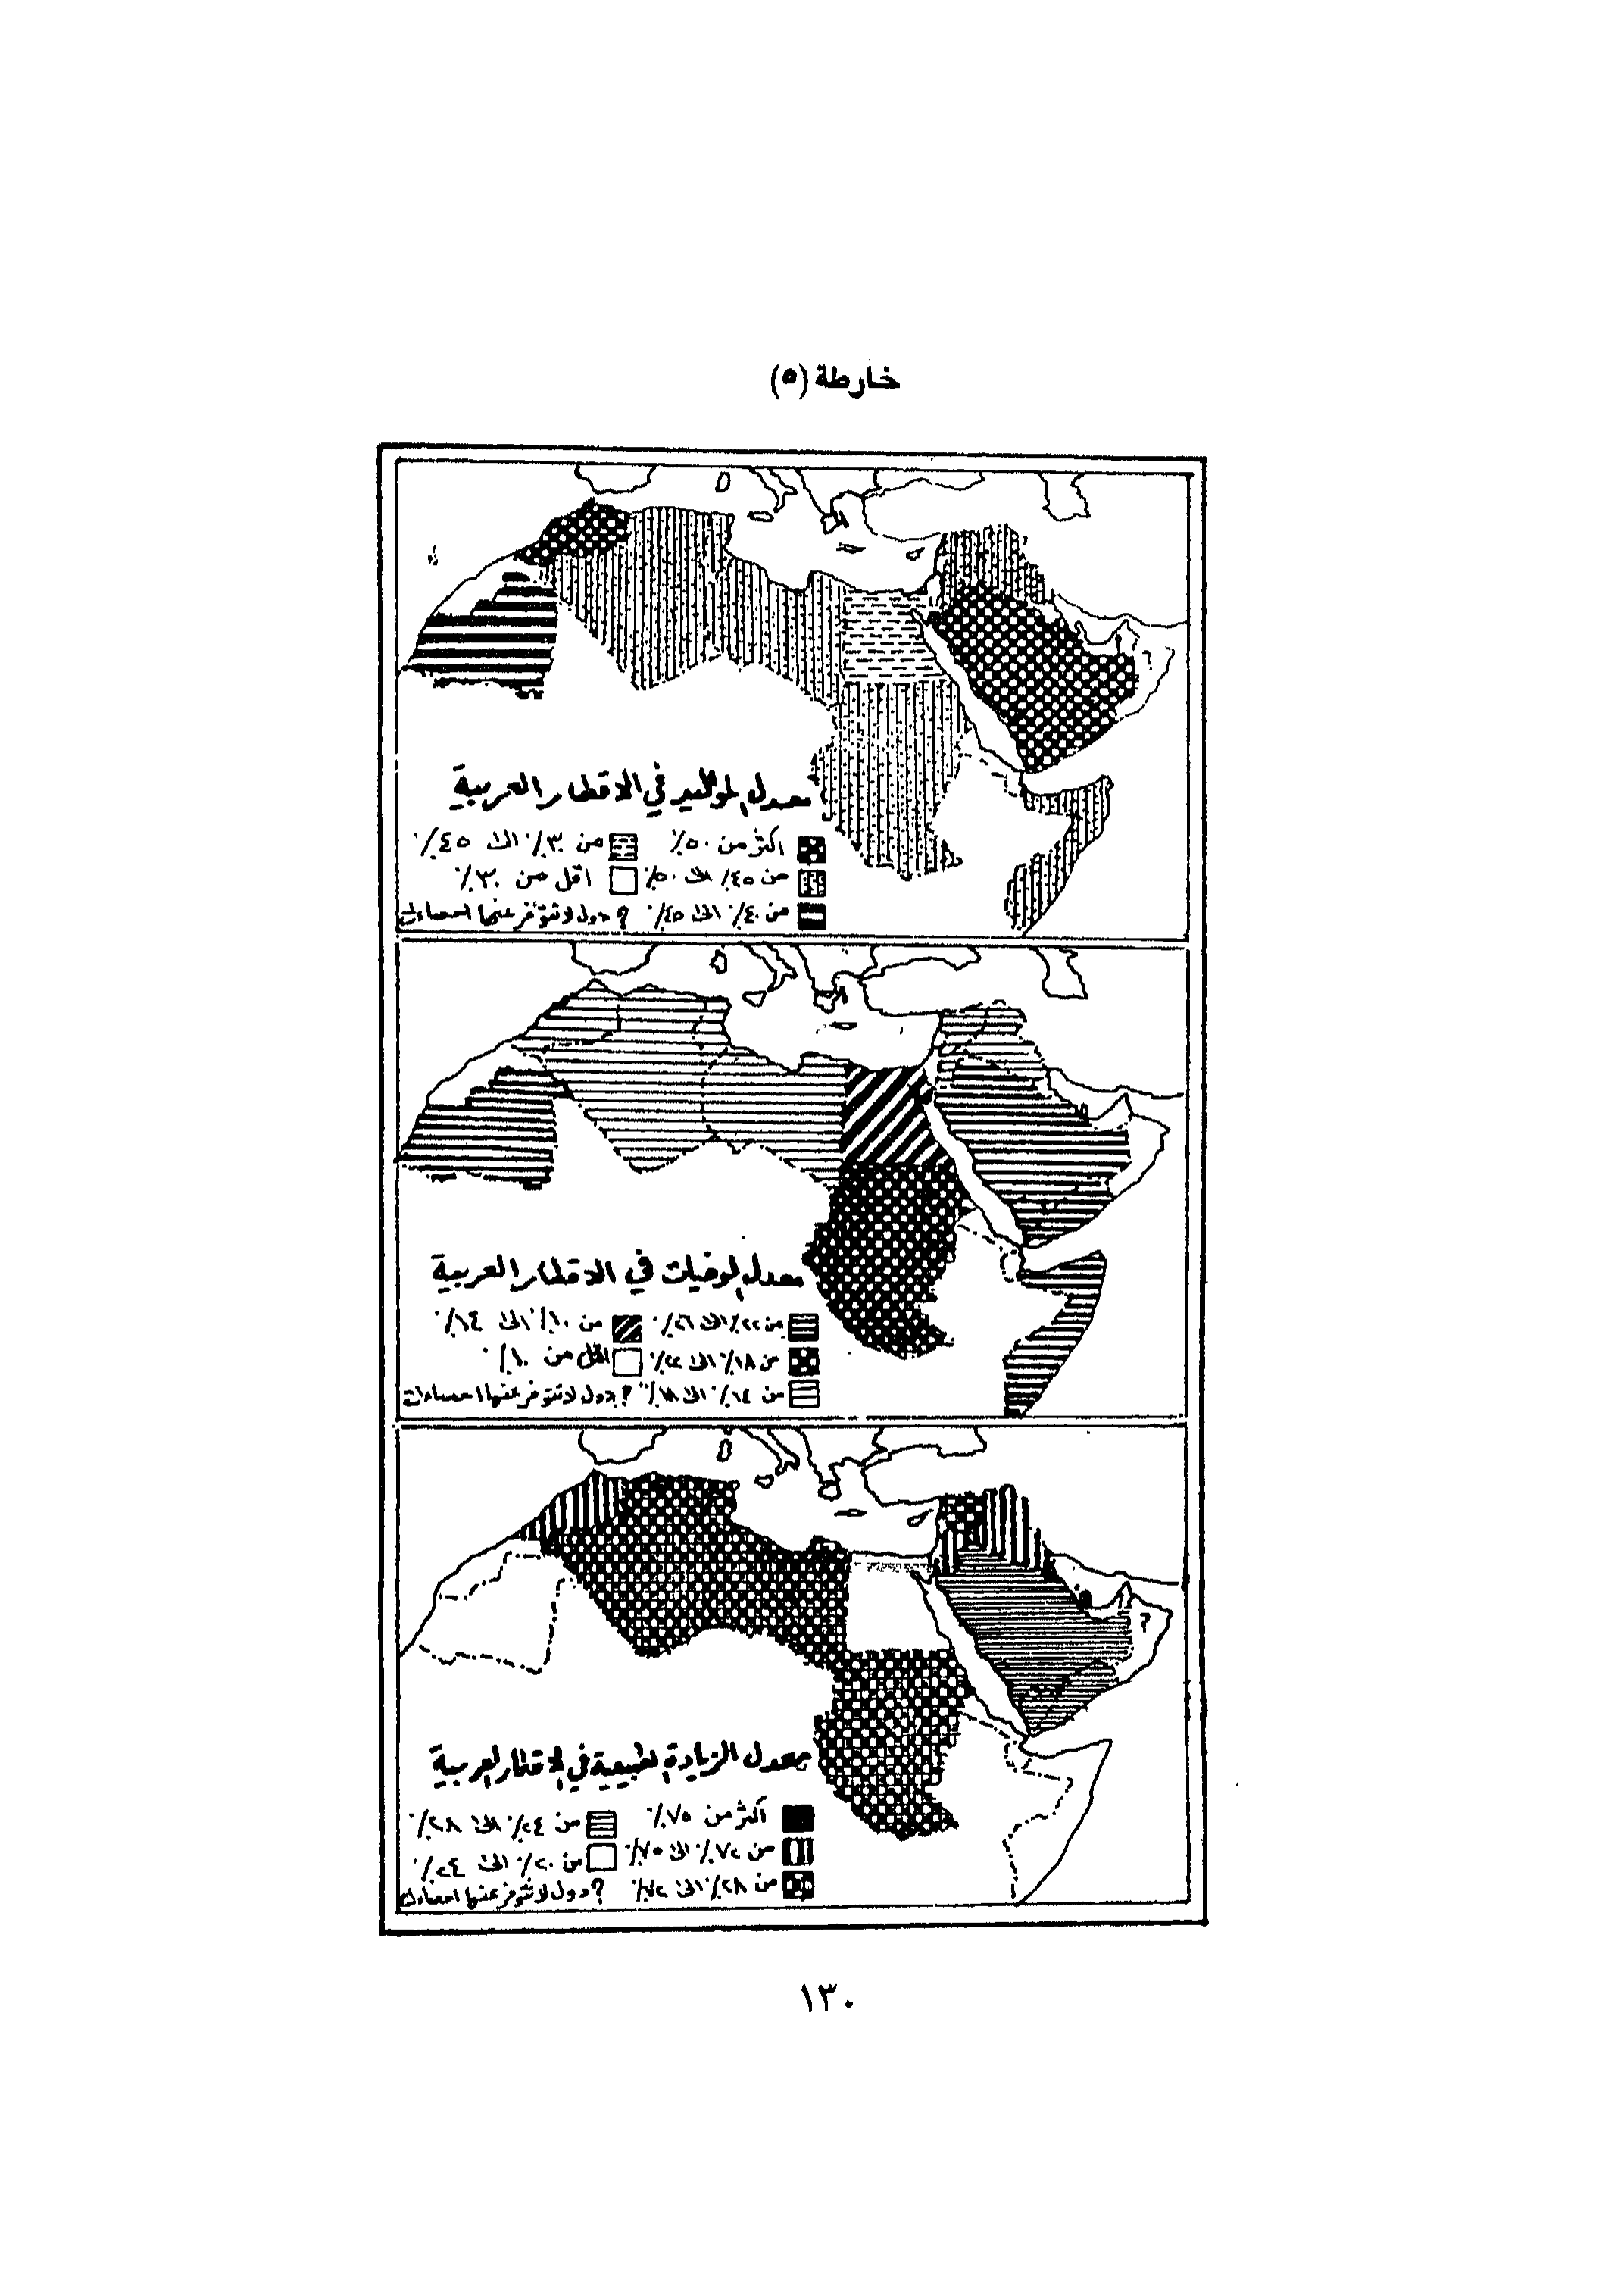 خارطة (٥)
معدل المواليد في الاقطار العربية
اكثر من ٥٠٪ من ٣٠٪ الى ٤٥٪
من ٤٥٪ الى ٥٠٪ اقل من ٣٠٪
من ٤٠٪ الى ٤٥٪ ? دول لا تتوفر عنها احصاءات
معدل الوفيات في الاقطار العربية
من ٢٢٪ الى ٢٦٪ من ١٠٪ الى ١٤٪
من ١٨٪ الى ٢٢٪ اقل من ١٠٪
من ١٤٪ الى ١٨٪ ? دول لا تتوفر عنها احصاءات
معدل الزيادة الطبيعية في الاقطار العربية
اكثر من ٧٥٪ من ٢٤٪ الى ٢٨٪
من ٧٢٪ الى ٧٥٪ من ٢٠٪ الى ٢٤٪
من ٢٨٪ الى ٧٢٪ ? دول لا تتوفر عنها احصاءات
١٣٠